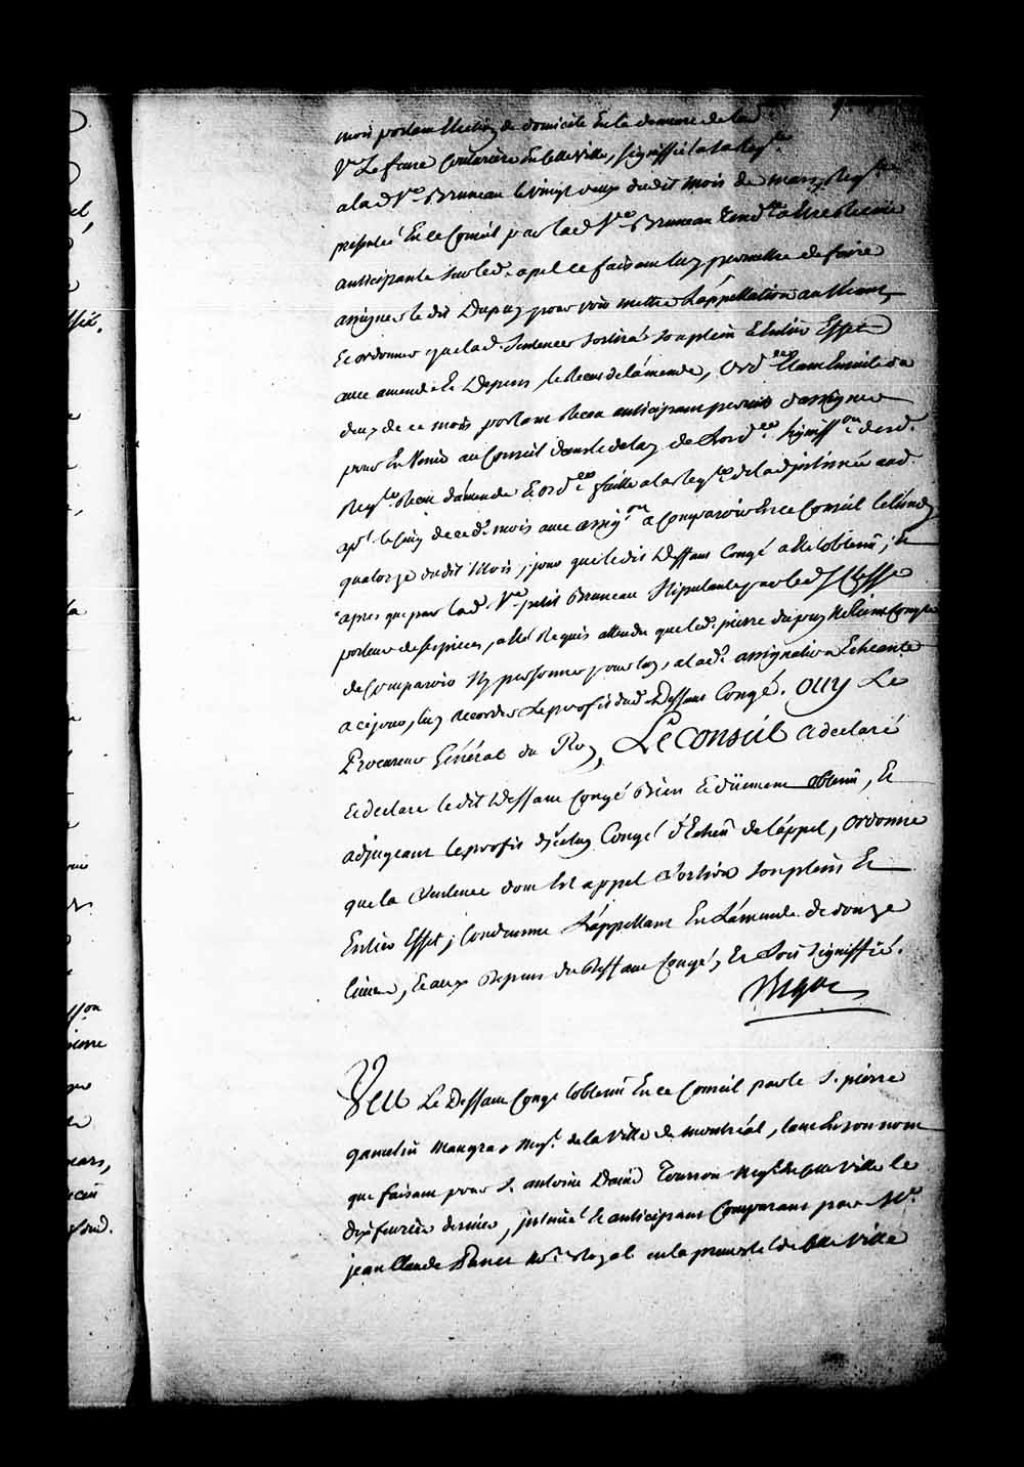 mois portant Election de domicile En la demeure de lad.
Ve Lefevre Couturière En cette Ville, signiffié à sa Reqte
a lad Ve Bruneau le vingt deux dudit mois de mars, Reqte
présentée En ce Conseil par lad Ve Bruneau Tendte à Etre Receüe
anticipante sur led. apel ce faisant luy permettre de faire
assigner le dit Dupuy pour voir mettre L'appellation au Neant,
Et ordonner que lad. Sentence Sortira Son plein Et Entier Effet
avec amende Et Depens, le Receu de l'amende, Ordce Etant Ensuite du
deux de ce mois portant Receu anticipant permis d'assigner
pour En Venir au Conseil dans le delay de Lordce, Signiffon desd.
Reqte, Receu d'amende Et ordce faitte a la Reqte de lad intimée aud.
apt le cinq de ced. mois avec assigon a Comparoir En ce Conseil le lundy
quatorze dudit Mois, jour que ledit Deffaut Congé a Eté obtenu; Et
apres que par lad. Ve petit Bruneau Stipulante par led Sr
porteur de ses pieces, a Eté Requis attendu que led. pierre dupuy Ne Tient Compte
de Comparoir Ny personne pour luy, a lade assignation Echeante
a ce jour, luy accorder Le profit dud Deffaut Congé. OUY Le
Procureur Général du Roy, LE CONSEIL a declaré
Et declare ledit Deffaut Congé Bien Et düement obtenu, Et
adjugeant le profit d'iceluy Congé d'Echeü de l'appel, ordonne
que la Sentence dont Est appel Sortira Son plein Et
Entier Effet; Condamne L'appellant En L'amende de douze
livres, Et aux Depens du Deffaut Congé, Et Soit Signiffié.
Bigot
Veu Le Deffaut Congé obtenu En ce Conseil par le S. pierre
gamelin Maugras Negt. de la Ville de Montréal, tant En son nom
que faisant pour S. antoine David Negt de cette Ville le
Dix fevrier dernier, intimé Et anticipant Comparant par Me
jean Claude Panet Nore Royal en la prevosté de cette Ville